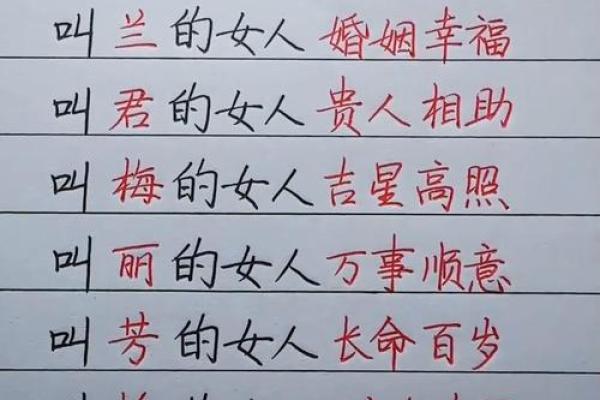 叫兰的女人婚姻幸福
叫君的女人贵人相助
叫梅的女人吉星高照
叫丽的女人万事顺意
叫芳的女人长命百岁